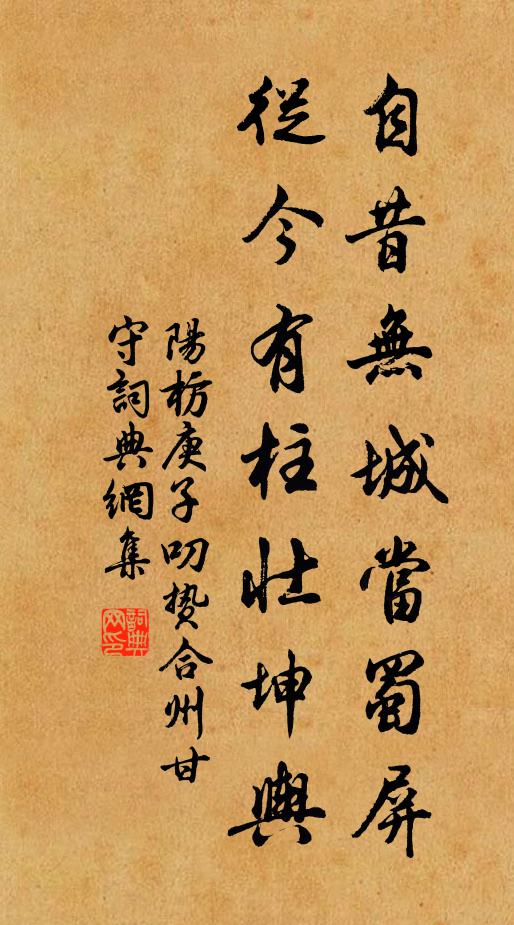 自昔無城當蜀屏
從今有柱壯坤輿
陽枋庚子叨贄合州甘
守詞典網集
詞典網印